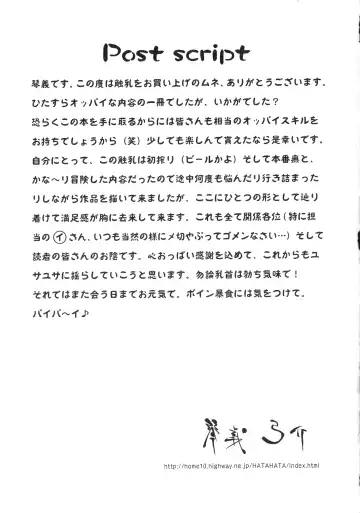 Post script
琴義です。この度は触乳をお買い上げのムネ、ありがとうございます。
ひたすらオッパイな内容の一冊でしたが、いかがでした？
恐らくこの本を手に取るからには皆さんも相当のオッパイスキルを
お持ちでしょうから（笑）少しでも楽しんで貰えたなら是幸いです。
自分にとって、この触乳は初搾り（ビールかよ）そして本番奥と、
かな〜り冒険した内容だったので途中何度も悩んだり行き詰まった
りしながら作品を描いて来ましたが、ここにひとつの形として辿り
着けて満足感が胸に去来して来ます。これも全て関係各位（特に担
当のイさん、いつも当然の様に〆切やぶってゴメンなさい…）そして
読者の皆さんのお陰です。心おっぱい感謝を込めて、これからもユ
サユサに揺らしていこうと思います。勿論乳首は勃ち気味で！
それではまた会う日までお元気で。ボイン暴食には気をつけて。
バイバ〜イ♪
琴義弓介
http://home10.highway.ne.jp/HATAHATA/index.html